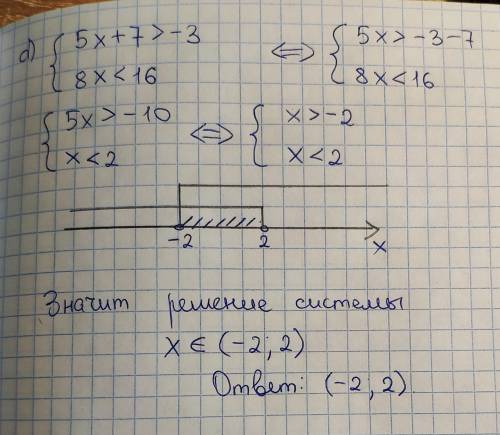 а) { 5x+7>-3 ⇔ { 5x>-3-7
8x<16 8x<16
{ 5x>-10 ⇔ { x>-2
x<2 x<2
-2 2 x
Значит решение системы
x ∈ (-2; 2)
Ответ: (-2; 2)